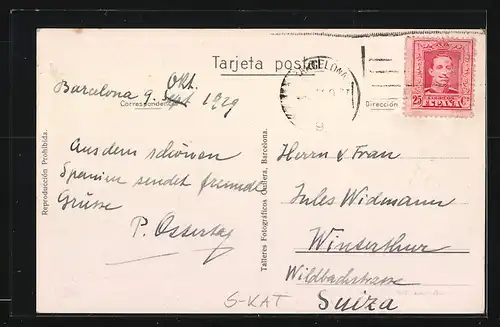 Tarjeta postal
BARCELONA
25 Cs
ESPAÑA
Barcelona 9. Okt. 1929
Correspondencia
Dirección
Aus dem schönen
Spanien sendet freundl.
Grüsse
P. Ostertag
Herrn & Frau
Jules Widmann
Winterthur
Wildbachstrasse
Suiza
S-KAT
Reproducción Prohibida.
Talleres Fotográficos Guilera, Barcelona.